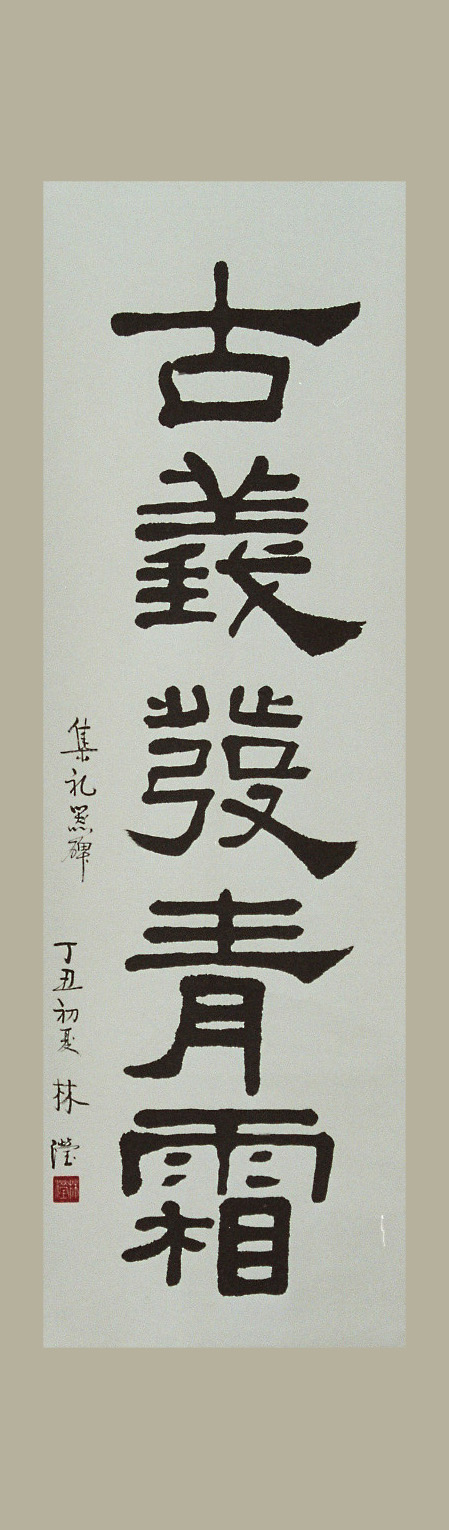 古義發青霜
集礼器碑 丁丑初夏 林瀅
林瀅